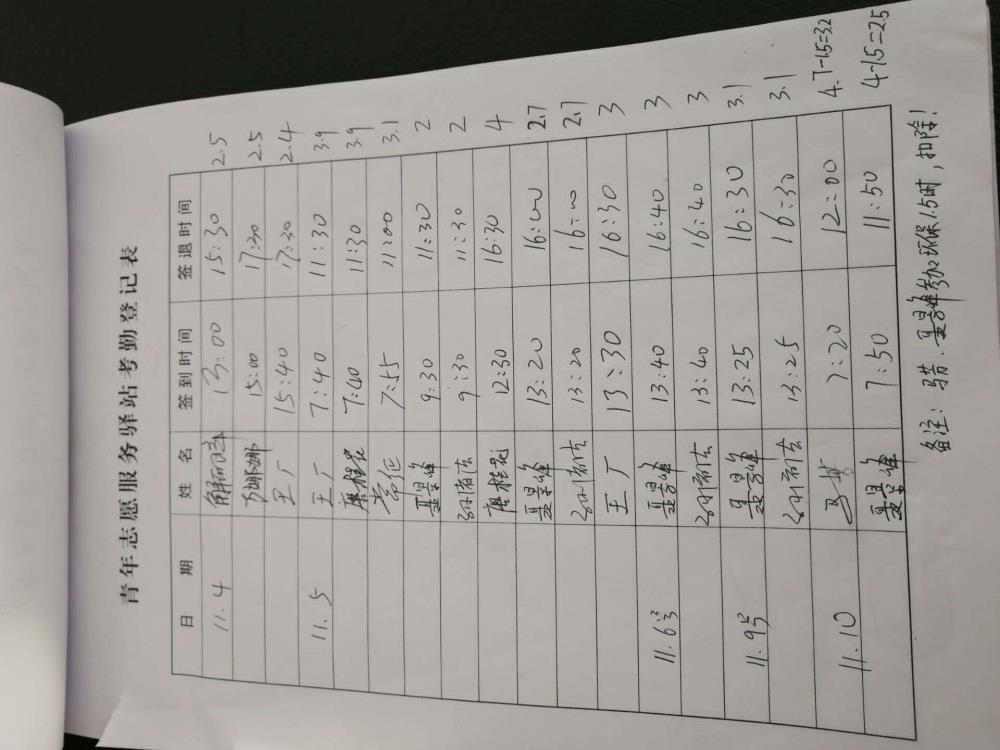 青年志愿服务驿站考勤登记表
日 期 姓 名 签到时间 签退时间
11.4 13:00 15:30 2.5
15:00 17:30 2.5
王厂 15:40 17:30 2.4
11.5 王厂 7:40 11:30 3.9
唐桂花 7:40 11:30 3.9
7:55 11:00 3.1
聂景峰 9:30 11:30 2
9:30 11:30 2
唐桂花 12:30 16:30 4
聂景峰 13:20 16:00 2.7
13:20 16:00 2.7
王厂 13:30 16:30 3
11.6号 聂景峰 13:40 16:40 3
13:40 16:40 3
11.9号 聂景峰 13:25 16:30 3.1
13:25 16:30 3.1
11.10 7:20 12:00 4.7-1.5=3.2
聂景峰 7:50 11:50 4-1.5=2.5
备注: 聂景峰 环保1.5时,扣除!